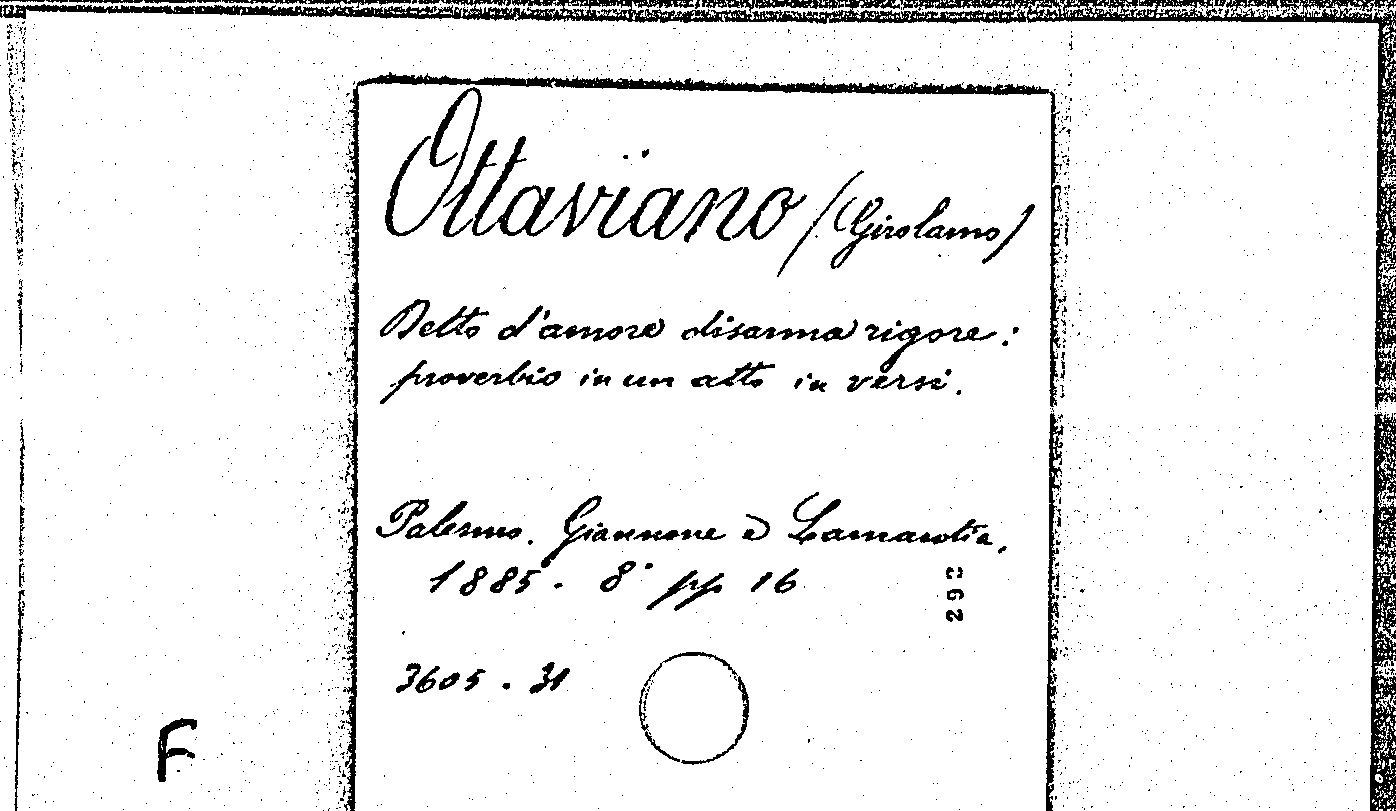 Ottaviano (Girolamo)
Detto d'amore disarma rigore:
proverbio in un atto in versi.
Palermo. Giannone e Lamantia,
1885. 8° pp 16
292
3605. 31
F